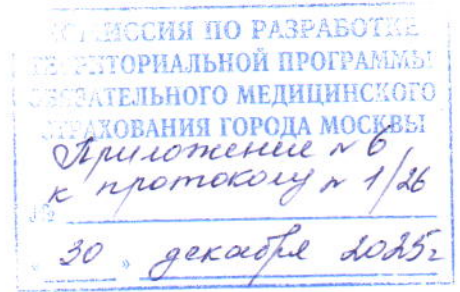 КОМИССИЯ ПО РАЗРАБОТКЕ
ТЕРРИТОРИАЛЬНОЙ ПРОГРАММЫ
ОБЯЗАТЕЛЬНОГО МЕДИЦИНСКОГО
СТРАХОВАНИЯ ГОРОДА МОСКВЫ
Приложение № 6
к протоколу № 1/26
№
" 30 " декабря 2025г